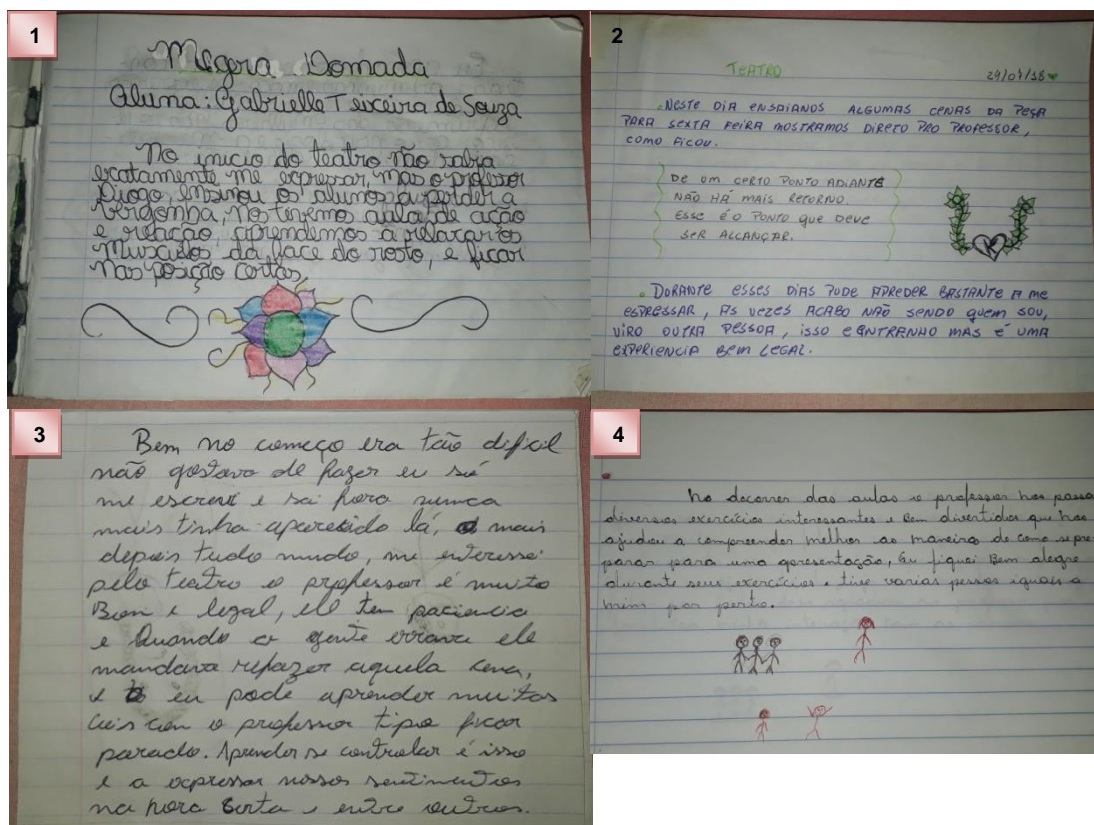 1
Megera Domada
Aluna: Gabrielle Teixeira de Souza
No inicio do teatro não sabia
exatamente me expressar, mas o professor
Diogo, ensinou os alunos a perder a
vergonha, nos tivemos aula de ação
e relação, aprendemos a relaxar os
musculos da face do rosto, e ficar
nas posição certas,
2
TEATRO 29/04/18
NESTE DIA ENSAIANOS ALGUMAS CENAS DA PEÇA
PARA SEXTA FEIRA MOSTRAMOS DIRETO PRO PROFESSOR,
COMO FICOU.
DE UM CERTO PONTO ADIANTE
NÃO HÁ MAIS RETORNO.
ESSE É O PONTO QUE DEVE
SER ALCANÇAR.
DURANTE ESSES DIAS PUDE APREDER BASTANTE A ME
ESPRESSAR, AS VEZES ACABO NÃO SENDO QUEM SOU,
VIRO OUTRA PESSOA, ISSO E ENTRANHO MAS É UMA
EXPERIENCIA BEM LEGAL.
3
Bem no começo era tão dificil
não gostava de fazer eu só
me escrevi e sai fora nunca
mais tinha aparecido lá, mais
depois tudo mudo, me enteresei
pelo teatro o professor é muito
Bom e legal, ele tem paciencia
e Quando a gente errava ele
mandava refazer aquela cena,
e eu pode aprender muitas
cois con o professor tipo ficar
parado. Aprender se controlar é isso
e a expressar nossos sentimentos
na hora Certa e entre outros.
4
No decorrer das aulas o professor nos passa
diversos exercícios interessantes e bem divertidos que nos
ajudou a compreender melhor as maneiras de como se pre
parar para uma apresentação, Eu fiquei Bem alegre
durante seus exercícios, tive varias pessoas iguais a
mim por perto.